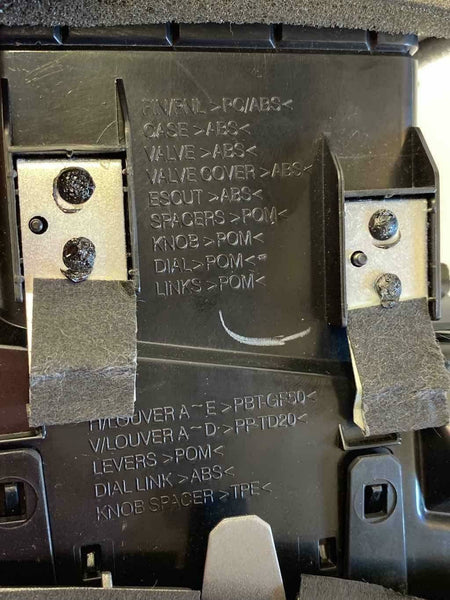 >PC/ABS<
CASE >ABS<
VALVE >ABS<
VALVE COVER >ABS<
ESCUT >ABS<
SPACERS >POM<
KNOB >POM<
DIAL >POM<
LINKS >POM<
H/LOUVER A~E >PBT-GF50<
V/LOUVER A~D >PP-TD20<
LEVERS >POM<
DIAL LINK >ABS<
KNOB SPACER >TPE<